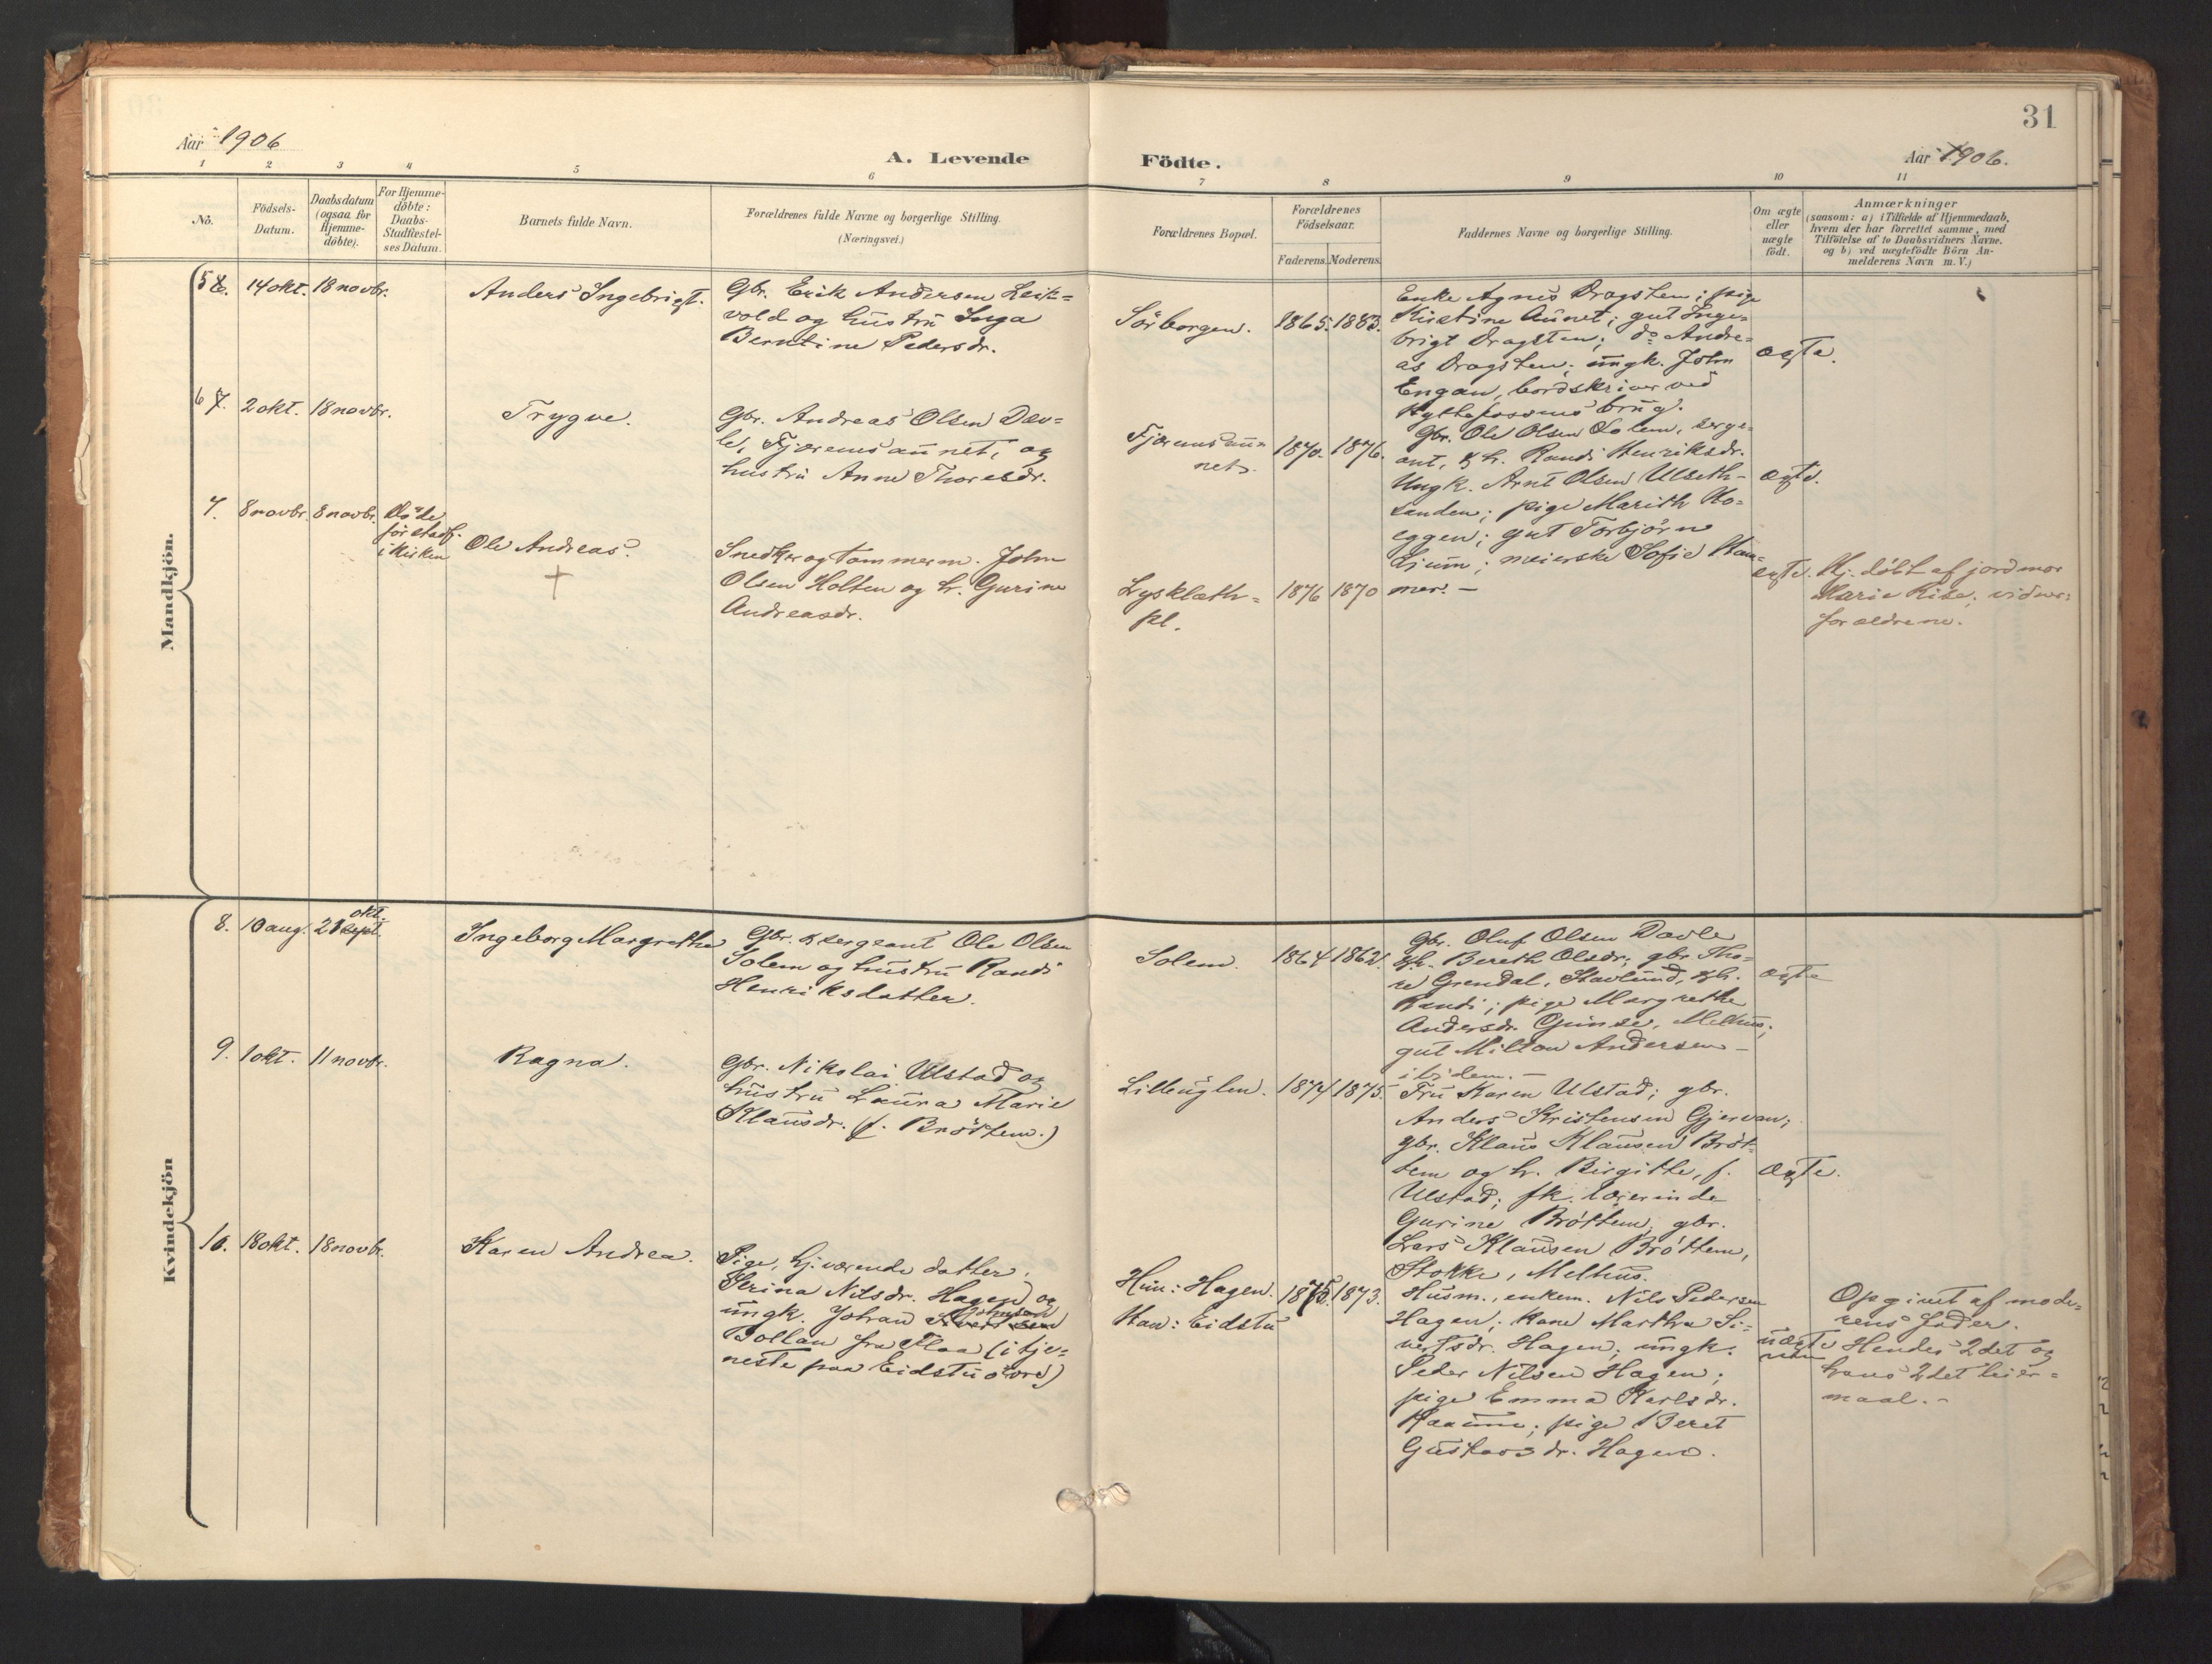 31
Aar 1906
A. Levende
Födte.
Aar 1906.
1 2 3 4 5 6 7 8 9 10 11
No.
Födsels-
Datum.
Daabsdatum
(ogsaa for
Hjemme-
döbte).
For Hjemme-
döbte:
Daabs-
Stadfæstel-
ses Datum.
Barnets fulde Navn.
Forældrenes fulde Navne og borgerlige Stilling.
(Næringsvei.)
Forældrenes Bopæl.
Forældrenes
Födselsaar.
Faderens. Moderens.
Faddernes Navne og borgerlige Stilling.
Om ægte
eller
uægte
födt.
Anmærkninger
(saasom: a) i Tilfælde af Hjemmedaab,
hvem der har forrettet samme, med
Tilföielse af to Daabsvidners Navne.
og b) ved uægtefödte Börn An-
melderens Navn m. V.)
Mandkjön.
5 14 okt. 18 novbr.
Anders Ingebrigt.
Gbr. Erik Andersen Leik=
vold og hustru Inga
Berntine Pedersdr.
Sörborgen.
1865. 1883.
Enke Agnes Dragsten; pige
Kirstine Aunet; gut Inge=
brigt Dragsten; do Andre=
as Dragsten; ungk. John
Engan, bordskriver ved
brug.
ægte.
6 7. 2 okt. 18 novbr.
Trygve.
Gbr. Andreas Olsen Dav=
le, Fjæremsaunet, og
hustru Anne Thoresdr.
Fjæremsau=
net.
1870. 1876.
Gbr. Ole Olsen Solem, serge=
ant, & h. Randi Henriksdr.
Ungk. Arnt Olsen Ulseth-
sanden; pige Marith Mo=
eggen; gut Torbjörn
meierske Sofie Ham=
mer. -
ægte.
7. 8 novbr. 8 novbr.
Döde
för stadf.
i kirken
Ole Andreas.
+
Snedker og tømmerm. John
Olsen Holten og h. Gurine
Andreasdr.
Lysklæth=
pl.
1876 1870
ægte.
Hj. döbt af jordmor
Marie Rise; vidner:
forældrene.
Kvindekjön
8. 10 aug. 21 sept. okt.
Ingeborg Margrethe
Gbr. & sergeant Ole Olsen
Solem og hustru Randi
Henriksdatter.
Solem.
1864 1862.
Gbr. Oluf Olsen Davle
& h. Bereth Olsdr; gbr. Tho=
re Grendal, Stavlund, & h.
Randi; pige Margrethe
Andersdr. Gimse, Melhus;
gut Milton Andersen -
ibidem. -
ægte
9. 1 okt. 11 novbr.
Ragna.
Gbr. Nikolai Ulstad og
hustru Laura Marie
Klausdr. (f. Bröttem.)
Lilleuglen.
1874 1875.
Fru Karen Ulstad; gbr.
Anders Kristensen Gjervan;
gbr. Klaus Klausen Bröt=
tem og h. Birgitte, f.
Ulstad; fk. lærerinde
Gurine Bröttem; gbr.
Lars Klausen Bröttem,
Stokke, Melhus.
ægte.
10. 18 okt. 18 novbr.
Karen Andrea.
Pige, hj. værende datter,
Serina Nilsdr. Hagen og
ungk. Johan Johnsen
Tollan fra Flaa (i tje=
neste paa Eidstu övre)
Hun: Hagen.
Han: Eidstu
1875. 1873.
Husm., enkem. Nils Pedersen
Hagen; kone Martha Si=
vertsdr. Hagen; ungk.
Peder Nilsen Hagen;
pige Emma Karlsdr.
pige Beret
Gustavsdr. Hagen.
uægte
Opgivet af mode=
rens fader.
Hendes 2det og
hans 2det leier=
maal. -